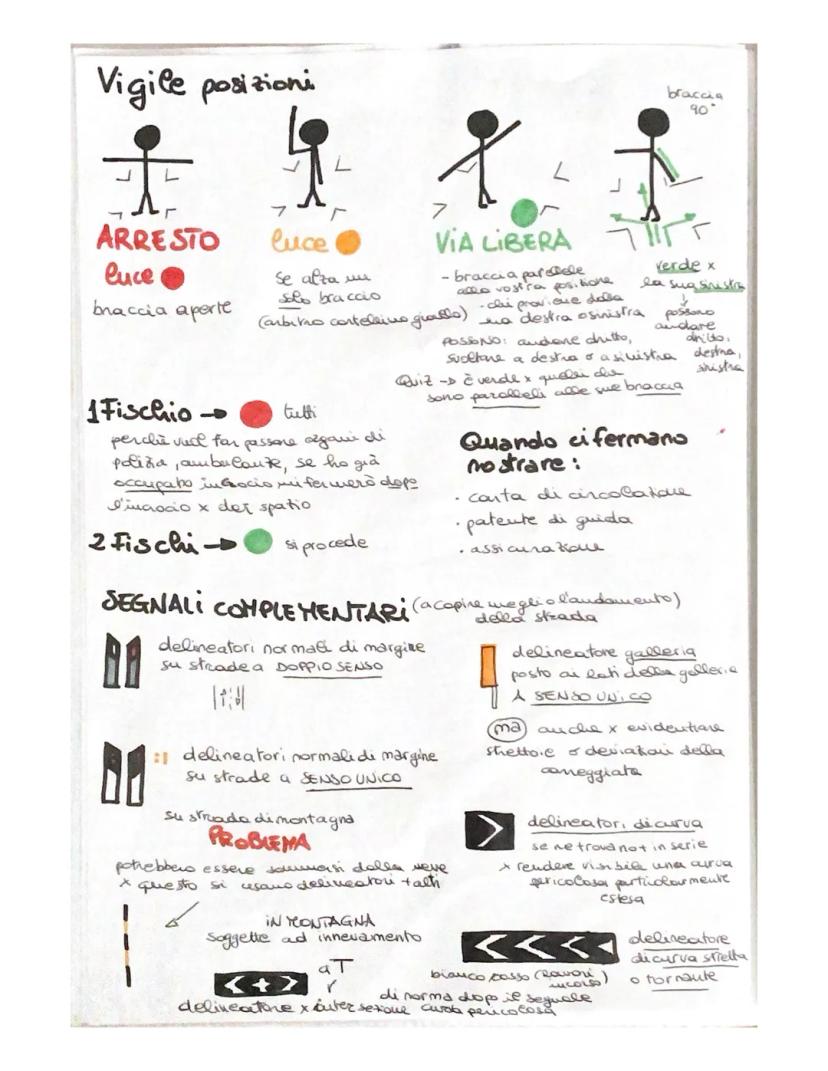 Vigile posizioni
braccia
90°
ARRESTO
luce
braccia aperte
luce
se alza un
solo braccio
(arbitro cartellino giallo)
VIA LIBERA
- braccia parallele
alla vostra posizione
- chi proviene dalla
sua destra o sinistra
possono: andare dritto,
svoltare a destra o a sinistra
Quiz -> è verde x quelli che
sono paralleli alle sue braccia
verde x
la sua sinistra
↓
possono
andare
dritto,
destra,
sinistra
1 Fischio → tutti
perchè vuol far passare organi di
polizia, ambulanze, se ho già
occupato incrocio mi fermerò dopo
l'incrocio x dei spatio
2 Fischi → si procede
Quando ci fermano
mostrare:
· carta di circolazione
· patente di guida
· assicurazione
SEGNALI COMPLEMENTARI (a capire meglio l'andamento)
della strada
delineatori normali di margine
su strade a DOPPIO SENSO
delineatori normali di margine
su strade a SENSO UNICO
su strada di montagna
PROBLEMA
potrebbero essere sommersi dalla neve
x questo si usano delineatori + alti
IN MONTAGNA
soggette ad innevamento
aT
delineatore x intersezione
delineatore galleria
posto ai lati della galleria
A SENSO UNICO
ma anche x evidenziare
strettoie o deviazioni della
carreggiata
delineatori di curva
se ne trovano + in serie
x rendere visibile una curva
pericolosa particolarmente
estesa
delineatore
di curva stretta
o tornante
bianco, rosso (lavori)
in corso
di norma dopo il segnale
curva pericolosa